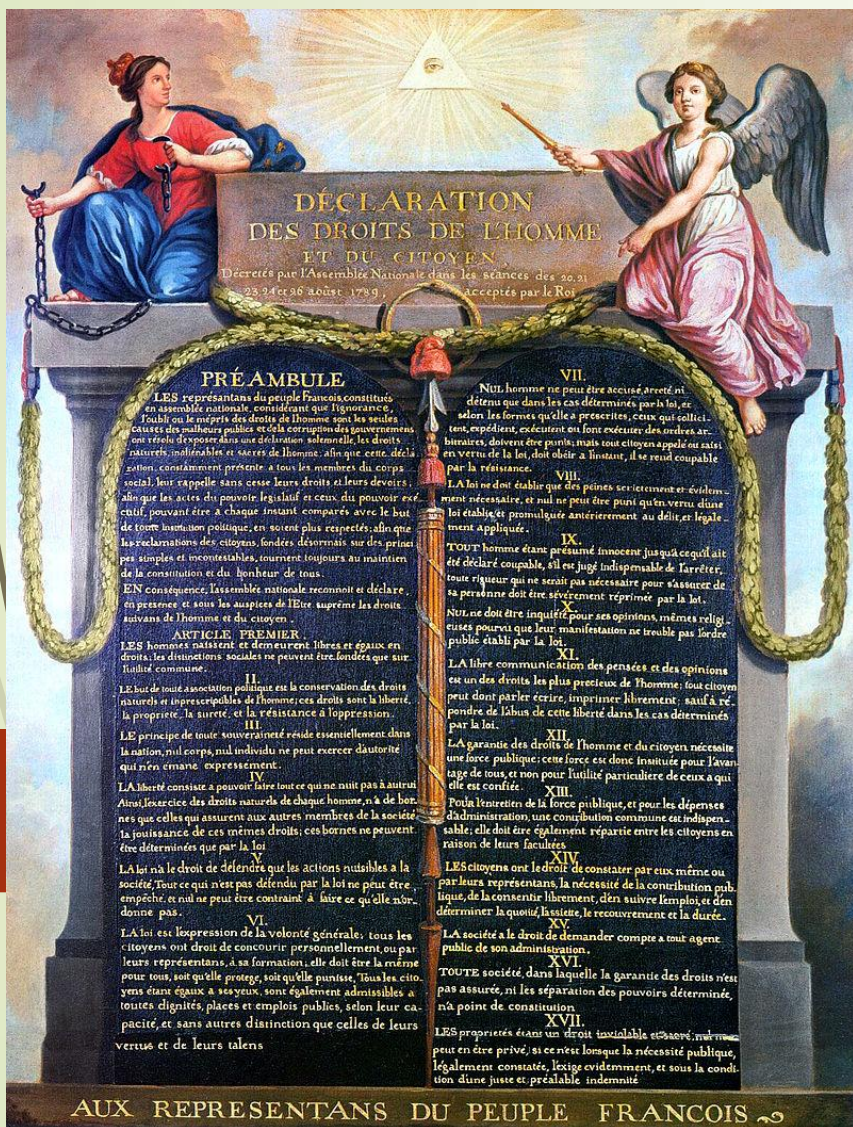 DÉCLARATION
DES DROITS DE L'HOMME
ET DU CITOYEN,
Décretés par l'Assemblée Nationale dans les séances des 20. 21
23. 24 et 26 août 1789, acceptés par le Roi
PRÉAMBULE
LES représantans du peuple Francois, constitués
en assemblée nationale, considérant que l'ignorance,
l'oubli ou le mépris des droits de l'homme sont les seules
causes des malheurs publics et de la corruption des gouvernemens
ont résolu d'exposer, dans une déclaration solemnelle, les droits
naturels, inaliénables et sacrés de l'homme: afin que cette décla
ration, constamment présente a tous les membres du corps
social, leur rappelle sans cesse leurs droits et leurs devoirs;
afin que les actes du pouvoir legislatif et ceux du pouvoir exé
cutif, pouvant être a chaque instant comparés avec le but
de toute institution politique, en soient plus respectés; afin que
les reclamations des citoyens, fondées désormais sur des princi
pes simples et incontestables, tournent toujours au maintien
de la constitution et du bonheur de tous.
EN conséquence, l'assemblée nationale reconnoit et déclare,
en presence et sous les auspices de l'Etre suprême les droits
suivans de l'homme et du citoyen.
ARTICLE PREMIER.
LES hommes naissent et demeurent libres et égaux en
droits; les distinctions sociales ne peuvent être fondées que sur
l'utilité commune.
II.
LE but de toute association politique est la conservation des droits
naturels et inprescripibles de l'homme; ces droits sont la liberté,
la propriete, la sureté, et la résistance à l'oppression.
III.
LE principe de toute souveraineté réside essentiellement dans
la nation, nul corps, nul individu ne peut exercer d'autorité
qui n'en emane expressement.
IV.
LA liberté consiste a pouvoir faire tout ce qui ne nuit pas à autrui
Ainsi, l'exercice des droits naturels de chaque homme, n'a de bor
nes que celles qui assurent aux autres membres de la société
la jouissance de ces mêmes droits; ces bornes ne peuvent
être déterminées que par la loi
V.
LA loi n'a le droit de défendre que les actions nuisibles a la
société, Tout ce qui n'est pas défendu par la loi ne peut être
empêché, et nul ne peut être contraint à faire ce qu'elle n'or-
donne pas.
VI.
LA loi est l'expression de la volonté générale; tous les
citoyens ont droit de concourir personnellement, ou par
leurs représentans, à sa formation; elle doit être la même
pour tous, soit qu'elle protege, soit qu'elle punisse, Tous les cito
yens étant égaux a ses yeux, sont également admissibles a
toutes dignités, places et emplois publics, selon leur ca-
pacité, et sans autres distinction que celles de leurs
vertus et de leurs talens
VII.
NUL homme ne peut être accusé, arreté ni
détenu que dans les cas déterminés par la loi, et
selon les formes qu'elle a prescrites, ceux qui sollici-
tent, expédient, exécutent ou font exécuter des ordres ar-
bitraires, doivent être punis; mais tout citoyen appelé ou saisi
en vertu de la loi, doit obéir a l'instant, il se rend coupable
par la résistance.
VIII.
LA loi ne doit établir que des peines strictement et évidem-
ment nécessaire, et nul ne peut être puni qu'en vertu d'une
loi établie et promulguée antérierement au délit, et légale-
ment appliquée.
IX.
TOUT homme étant présumé innocent jusqu'a ce qu'il ait
été déclaré coupable, s'il est jugé indispensable de l'arrêter,
toute rigueur qui ne serait pas nécessaire pour s'assurer de
sa personne doit être sévèrement réprimée par la loi.
X.
NUL ne doit être inquiété pour ses opinions, mêmes religi
euses pourvu que leur manifestation ne trouble pas l'ordre
public établi par la loi.
XI.
LA libre communication des pensées et des opinions
est un des droits les plus precieux de l'homme; tout citoyen
peut dont parler écrire, imprimer librement; sauf à ré-
pondre de l'abus de cette liberté dans les cas déterminés
par la loi.
XII.
LA garantie des droits de l'homme et du citoyen nécessite
une force publique; cette force est donc instituée pour l'avan-
tage de tous, et non pour l'utilité particuliere de ceux a qui
elle est confiée.
XIII.
POUR l'entretien de la force publique, et pour les dépenses
d'administration, une contribution commune est indispen-
sable; elle doit être également répartie entre les citoyens en
raison de leurs facultées
XIV.
LES citoyens ont le droit de constater par eux même ou
par leurs représentans, la nécessité de la contribution pub-
lique, de la consentir librement, d'en suivre l'emploi, et d'en
déterminer la quotité, l'assiette, le recouvrement et la durée.
XV.
LA société a le droit de demander compte a tout agent
public de son administration.
XVI.
TOUTE société, dans laquelle la garantie des droits n'est
pas assurée, ni les séparation des pouvoirs déterminée,
n'a point de constitution
XVII.
LES proprietés étant un droit inviolable et sacré, nul ne
peut en être privé, si ce n'est lorsque la nécessité publique,
légalement constatée, l'exige evidemment, et sous la condi-
tion d'une juste et préalable indemnité
AUX REPRESENTANS DU PEUPLE FRANCOIS